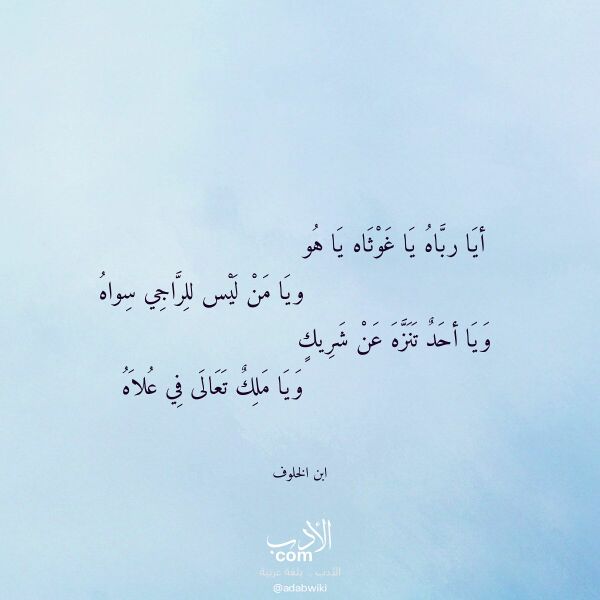 أيَا ربَّاهُ يَا غَوْثَاه يَا هُو
ويَا مَنْ لَيْس للِرَّاجِي سِواهُ
وَيَا أحَدٌ تَنَزَّهَ عَنْ شَرِيكٍ
وَيَا مَلِكٌ تَعَالَى فِي عُلاَهُ
ابن الخلوف
الأدب
com
الأدب .. بلغة عربية
@adabwiki